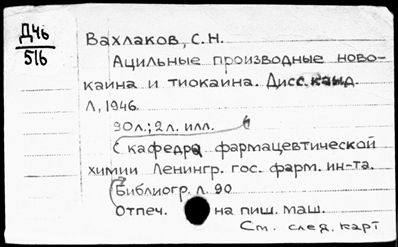 Дч6
516
Вахлаков, С.Н.
Ацильные производные ново-
каина и тиокаина. Дисс. канд.
Л, 1946.
90л.; 2л. илл.
(кафедра фармацевтической
химии Ленингр. гос. фарм. ин-та.
Библиогр. л. 90
Отпеч. на пиш. маш.
См. след. карт